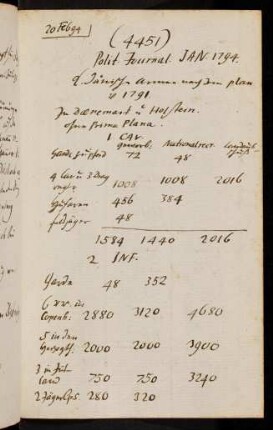 20 Feb 94
(4451)
Polit Journal. JAN. 1794.
d. Dänische Armee nach dem plan
v 1791.
In Daenemark u Holstein.
ohne Prima Plana.
1 CAV.
geworb. Nationalrecr.
Garde zu pferd 72 48
4 Cür u 3 Drag
regtr 1008 1008 2016
Husaren 456 384
feldjäger 48
1584 1440 2016
2 INF.
Garde 48 352
6 rr. in
Copenh. 2880 3120 4680
5 in den
2000 2000 3900
3 in Jüt
land 750 750 3240
2 JägerCps. 280 320